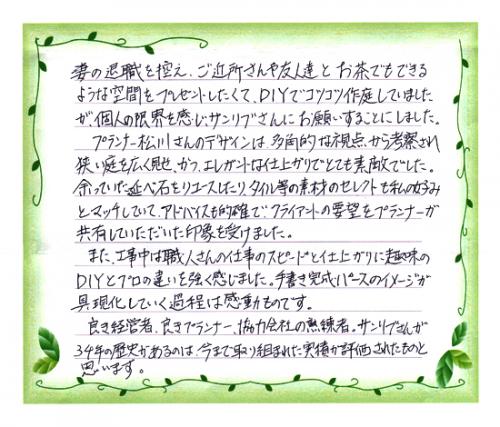 妻の退職を控え、ご近所さんや友人達とお茶でもできる
ような空間をプレゼントしたくて、DIYでコツコツ作庭していました
が、個人の限界を感じ、サンリブさんにお願いすることにしました。
プランナー松川さんのデザインは、多角的な視点から考察され
狭い庭を広く見せ、かつ、エレガントな仕上がりでとても素敵でした。
余っていた延べ石をリユースしたり、タイル等の素材のセレクトも私の好み
とマッチしていて、アドバイスも的確で、クライアントの要望をプランナーが
共有していただいた印象を受けました。
また、工事中は職人さんの仕事のスピードと仕上がりに趣味の
DIYとプロの違いを強く感じました。手書き完成パースのイメージが
具現化していく過程は感動ものです。
良き経営者、良きプランナー、協力会社の熟練者。サンリブさんが
34年の歴史があるのは、今まで取り組まれた実績が評価されたものと
思います。